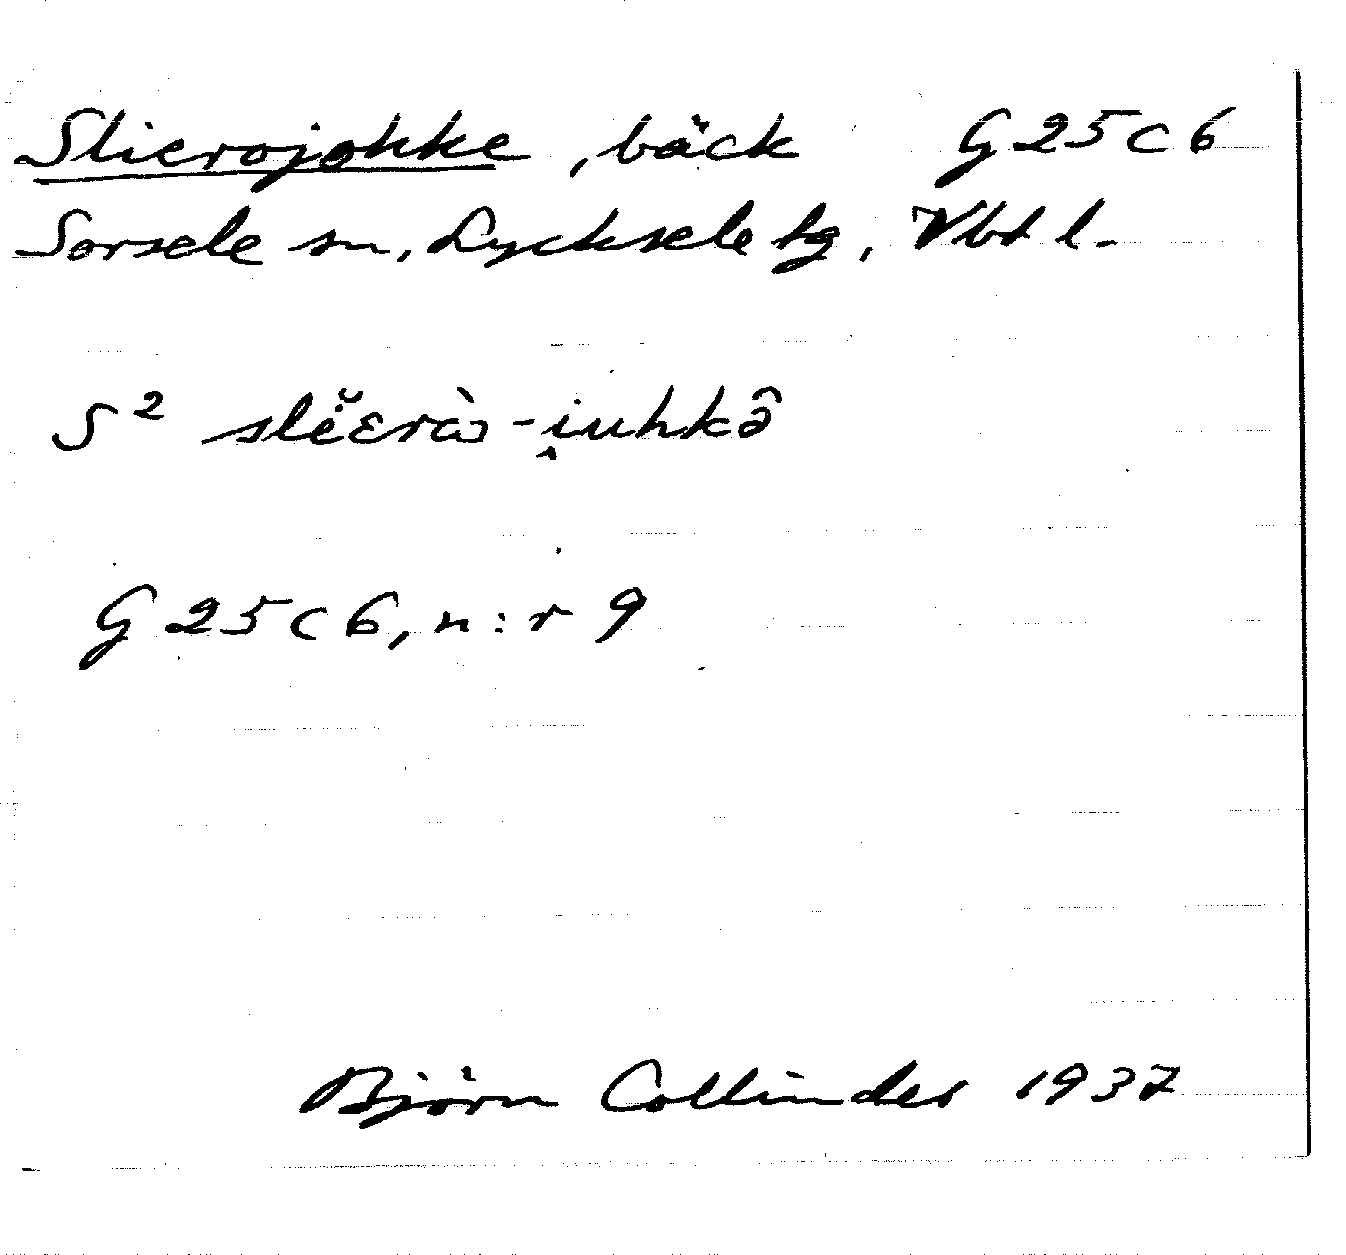 Slierojokke, bäck G 25 c 6
Sorsele sn, Lycksele tg, Vbt l.
S² slẹ̆ɛràɔ-i̯uhkə̂
G 25 c 6, n:r 9
Björn Collinder 1937